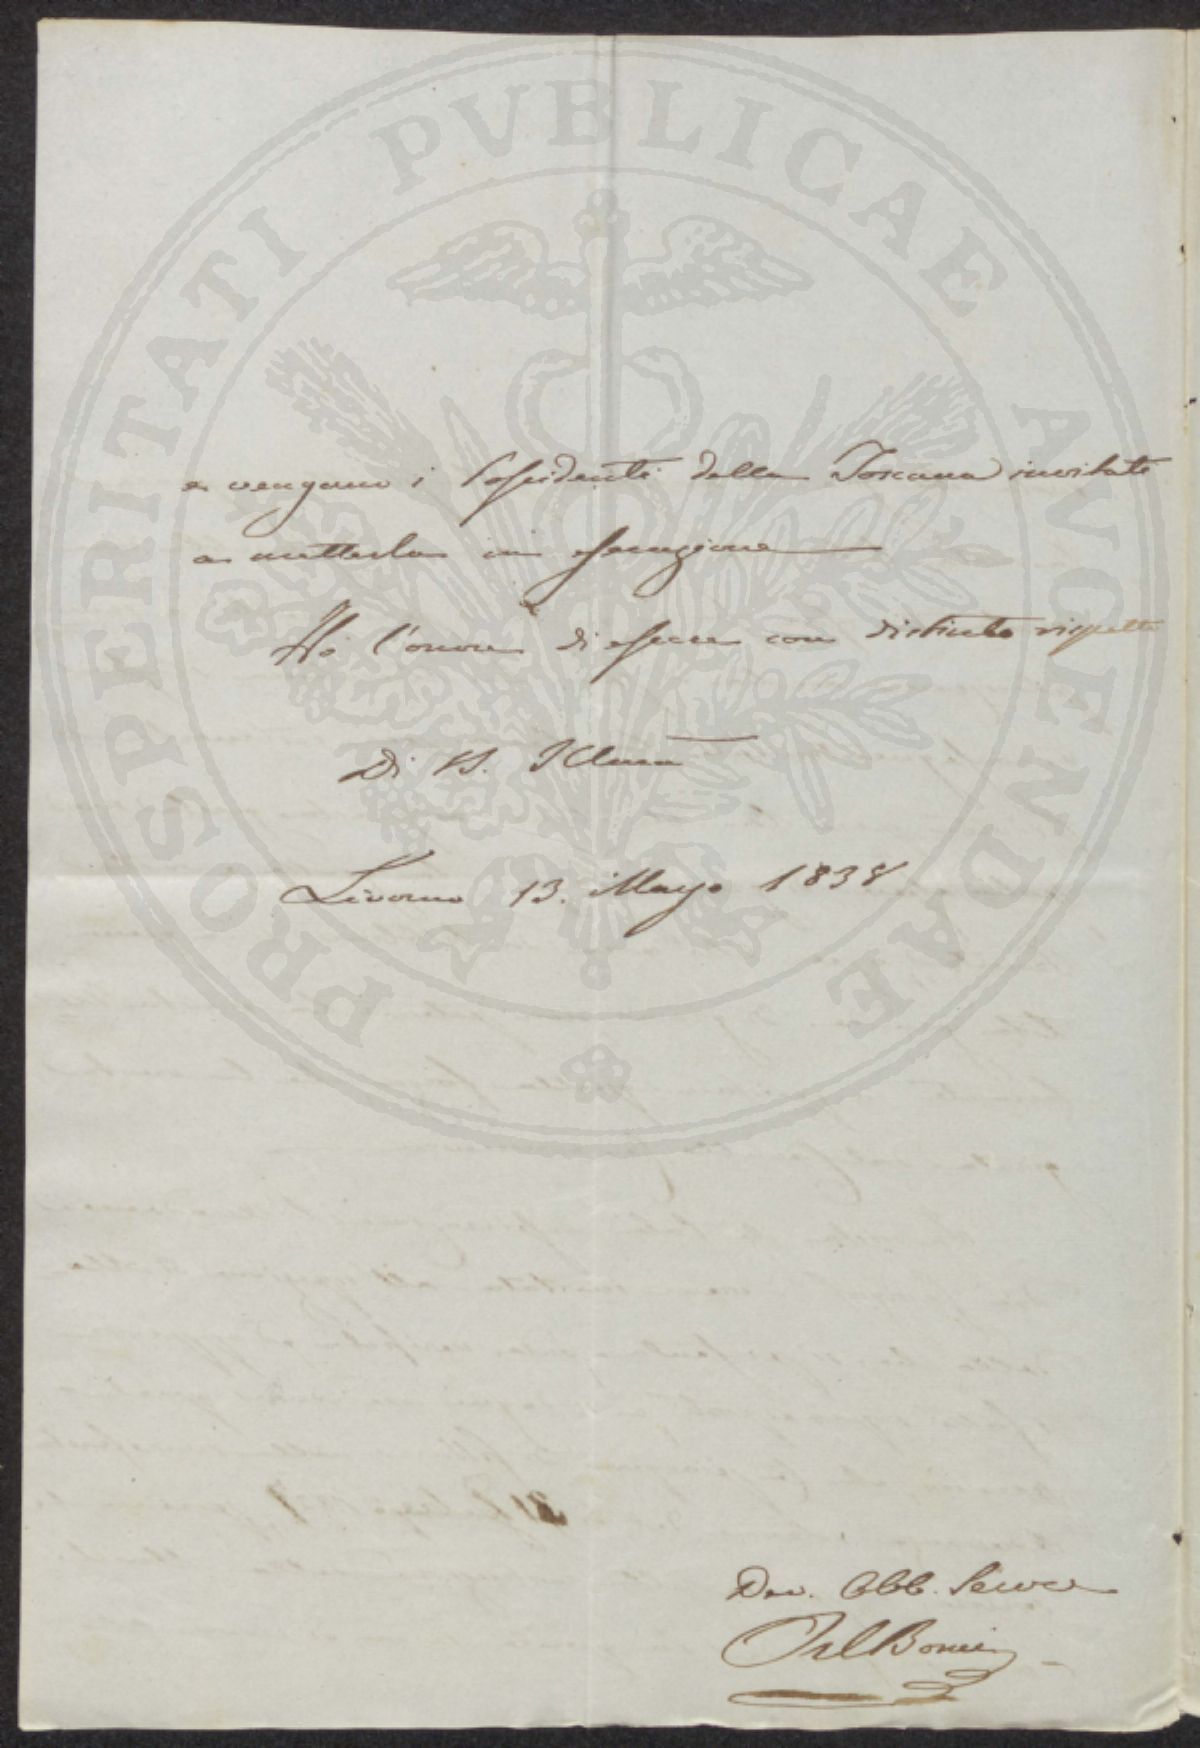 PROSPERITATI PVBLICAE AVGENDAE
e vengano i Possidenti della Toscana invitati
a metterla in esecuzione
Ho l'onore di essere con distinto rispetto
Di V. S. Illma
Livorno 13. Mago 1838
Dev. Obb. Servre